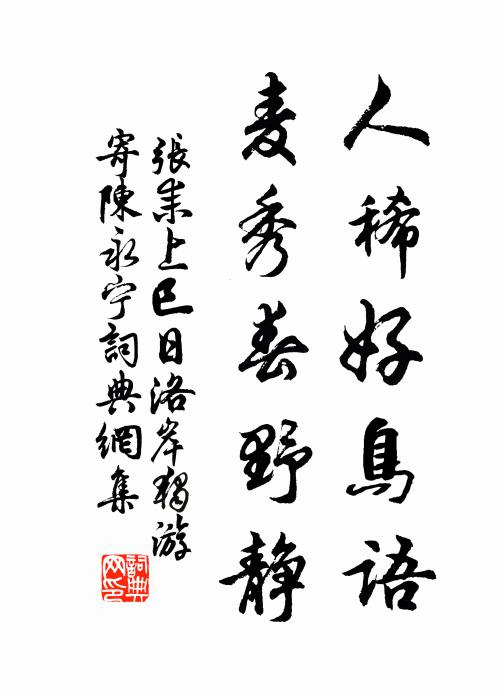 人稀好鳥語
麦秀春野静
張耒上巳日洛岸獨游
寄陳永宁詞典網集
詞典网印